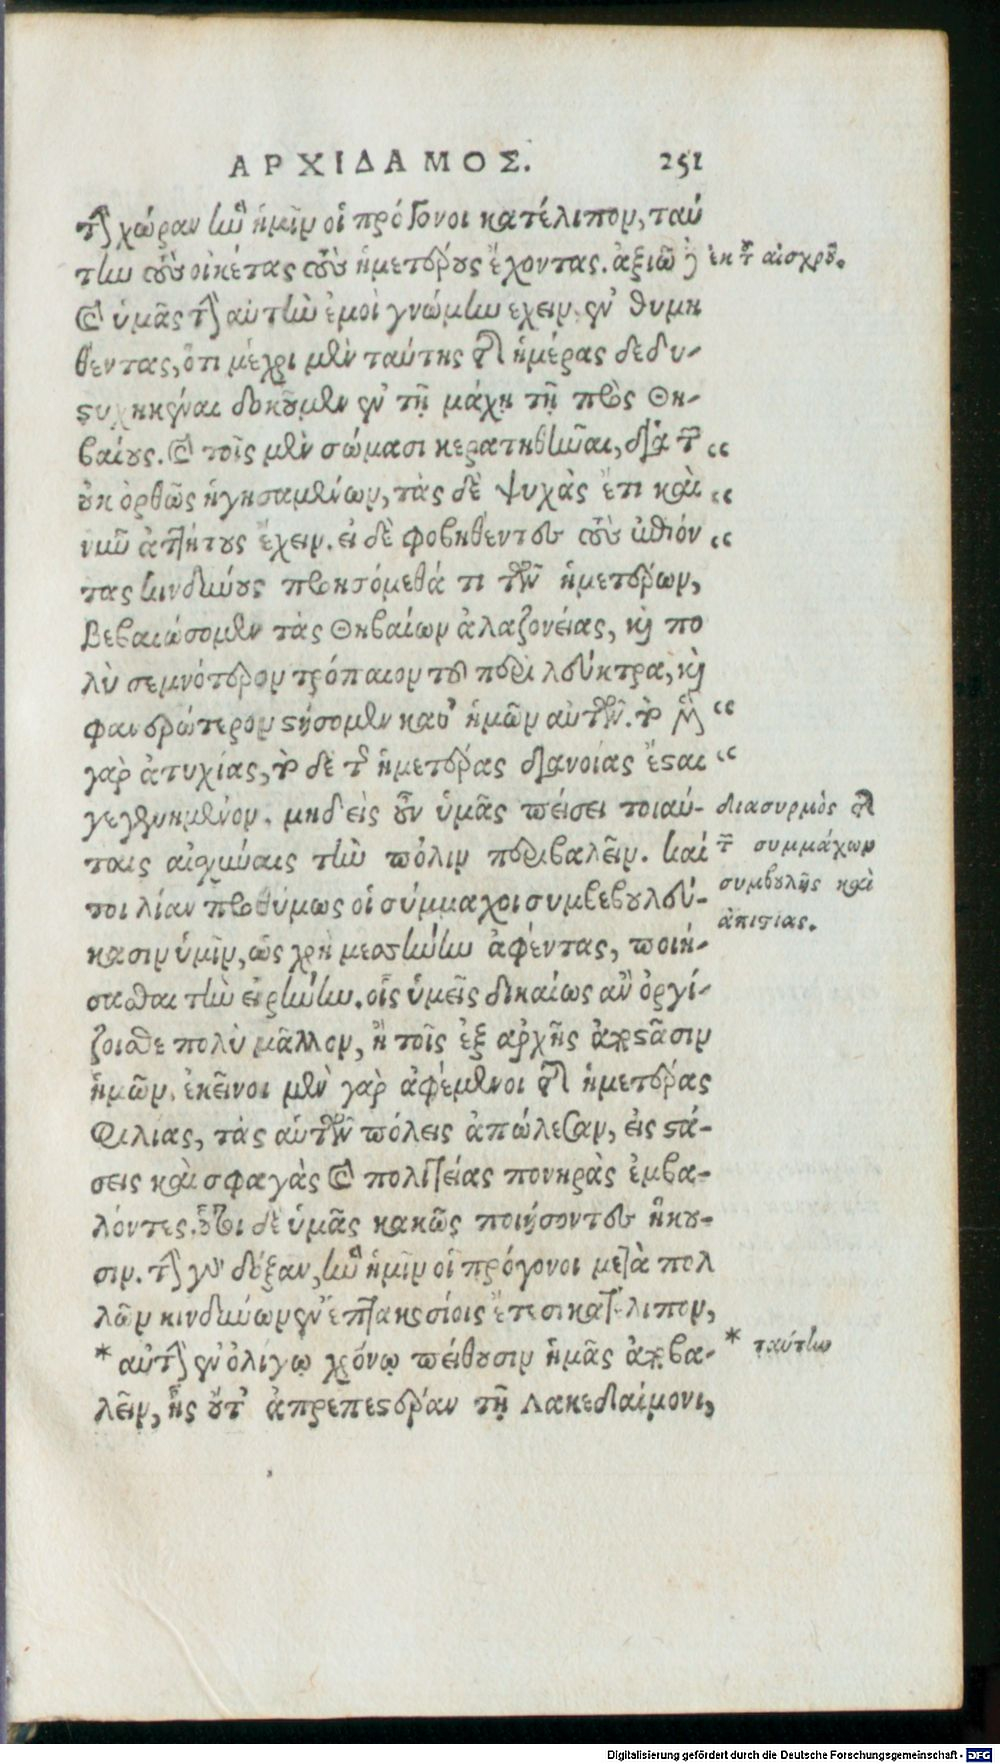 ΑΡΧΙΔΑΜΟΣ. 251
τὴν χώραν ἣν ἡμῖν οἱ πρόγονοι κατέλιπον, ταύ
την τοὺς οἰκέτας τοὺς ἡμετέρους ἔχοντας. ἀξιῶ δὲ
καὶ ὑμᾶς τὴν αὐτὴν ἐμοὶ γνώμην ἔχειν, ἐνθυμη
θέντας, ὅτι μέχρι μὲν ταύτης τῆς ἡμέρας δεδυ-
στυχηκέναι δοκοῦμεν ἐν τῇ μάχῃ τῇ πρὸς Θη-
βαίους. καὶ τοῖς μὲν σώμασι κερατηθῆναι, διὰ τὸν
οὐκ ὀρθῶς ἡγησαμένων, τὰς δὲ ψυχὰς ἔτι καὶ
νῦν ἀηττήτους ἔχειν. εἰ δὲ φοβηθέντες τοὺς ἐπιόν
τας κινδύνους προησόμεθά τι τῶν ἡμετέρων,
βεβαιώσομεν τὰς Θηβαίων ἀλαζονείας, καὶ πο
λὺ σεμνότερον τρόπαιον τοῦ περὶ Λεύκτρα, καὶ
φανερώτερον στήσομεν καθ' ἡμῶν αὐτῶν. τὸ μὲν
γὰρ ἀτυχίας, τὸ δὲ τῆς ἡμετέρας διανοίας ἔσται
γεγενημένον. μηδεὶς οὖν ὑμᾶς πείσει τοιαύ-
ταις αἰσχύναις τὴν πόλιν περιβαλεῖν. καί
τοι λίαν προθύμως οἱ σύμμαχοι συμβεβουλεύ-
κασιν ὑμῖν, ὡς χρὴ μεσσήνην ἀφέντας, ποιή-
σασθαι τὴν εἰρήνην. οἷς ὑμεῖς δικαίως ἂν ὀργί-
ζοισθε πολὺ μᾶλλον, ἢ τοῖς ἐξ ἀρχῆς ἀποστᾶσιν
ἡμῶν. ἐκεῖνοι μὲν γὰρ ἀφέμενοι τῆς ἡμετέρας
φιλίας, τὰς αὑτῶν πόλεις ἀπώλεσαν, εἰς στά-
σεις καὶ σφαγὰς καὶ πολιτείας πονηρὰς ἐμβα-
λόντες. οὗτοι δὲ ὑμᾶς κακῶς ποιήσοντες ἥκου-
σιν. τὴν γὰρ δόξαν, ἣν ἡμῖν οἱ πρόγονοι μετὰ πολ
λῶν κινδύνων ἐν ἑπτακοσίοις ἔτεσι κατέλιπον,
* αὐτὴν ἐν ὀλίγῳ χρόνῳ πείθουσιν ἡμᾶς ἀποβα-
λεῖν, ἧς οὔτ' ἀπρεπεστέραν τῇ Λακεδαίμονι,
ἐκ τοῦ αἰσχροῦ.
διασυρμὸς τῆς
τῶν συμμάχων
συμβουλῆς καὶ
ἀπιστίας.
* ταύτην
Digitalisierung gefördert durch die Deutsche Forschungsgemeinschaft - DFG